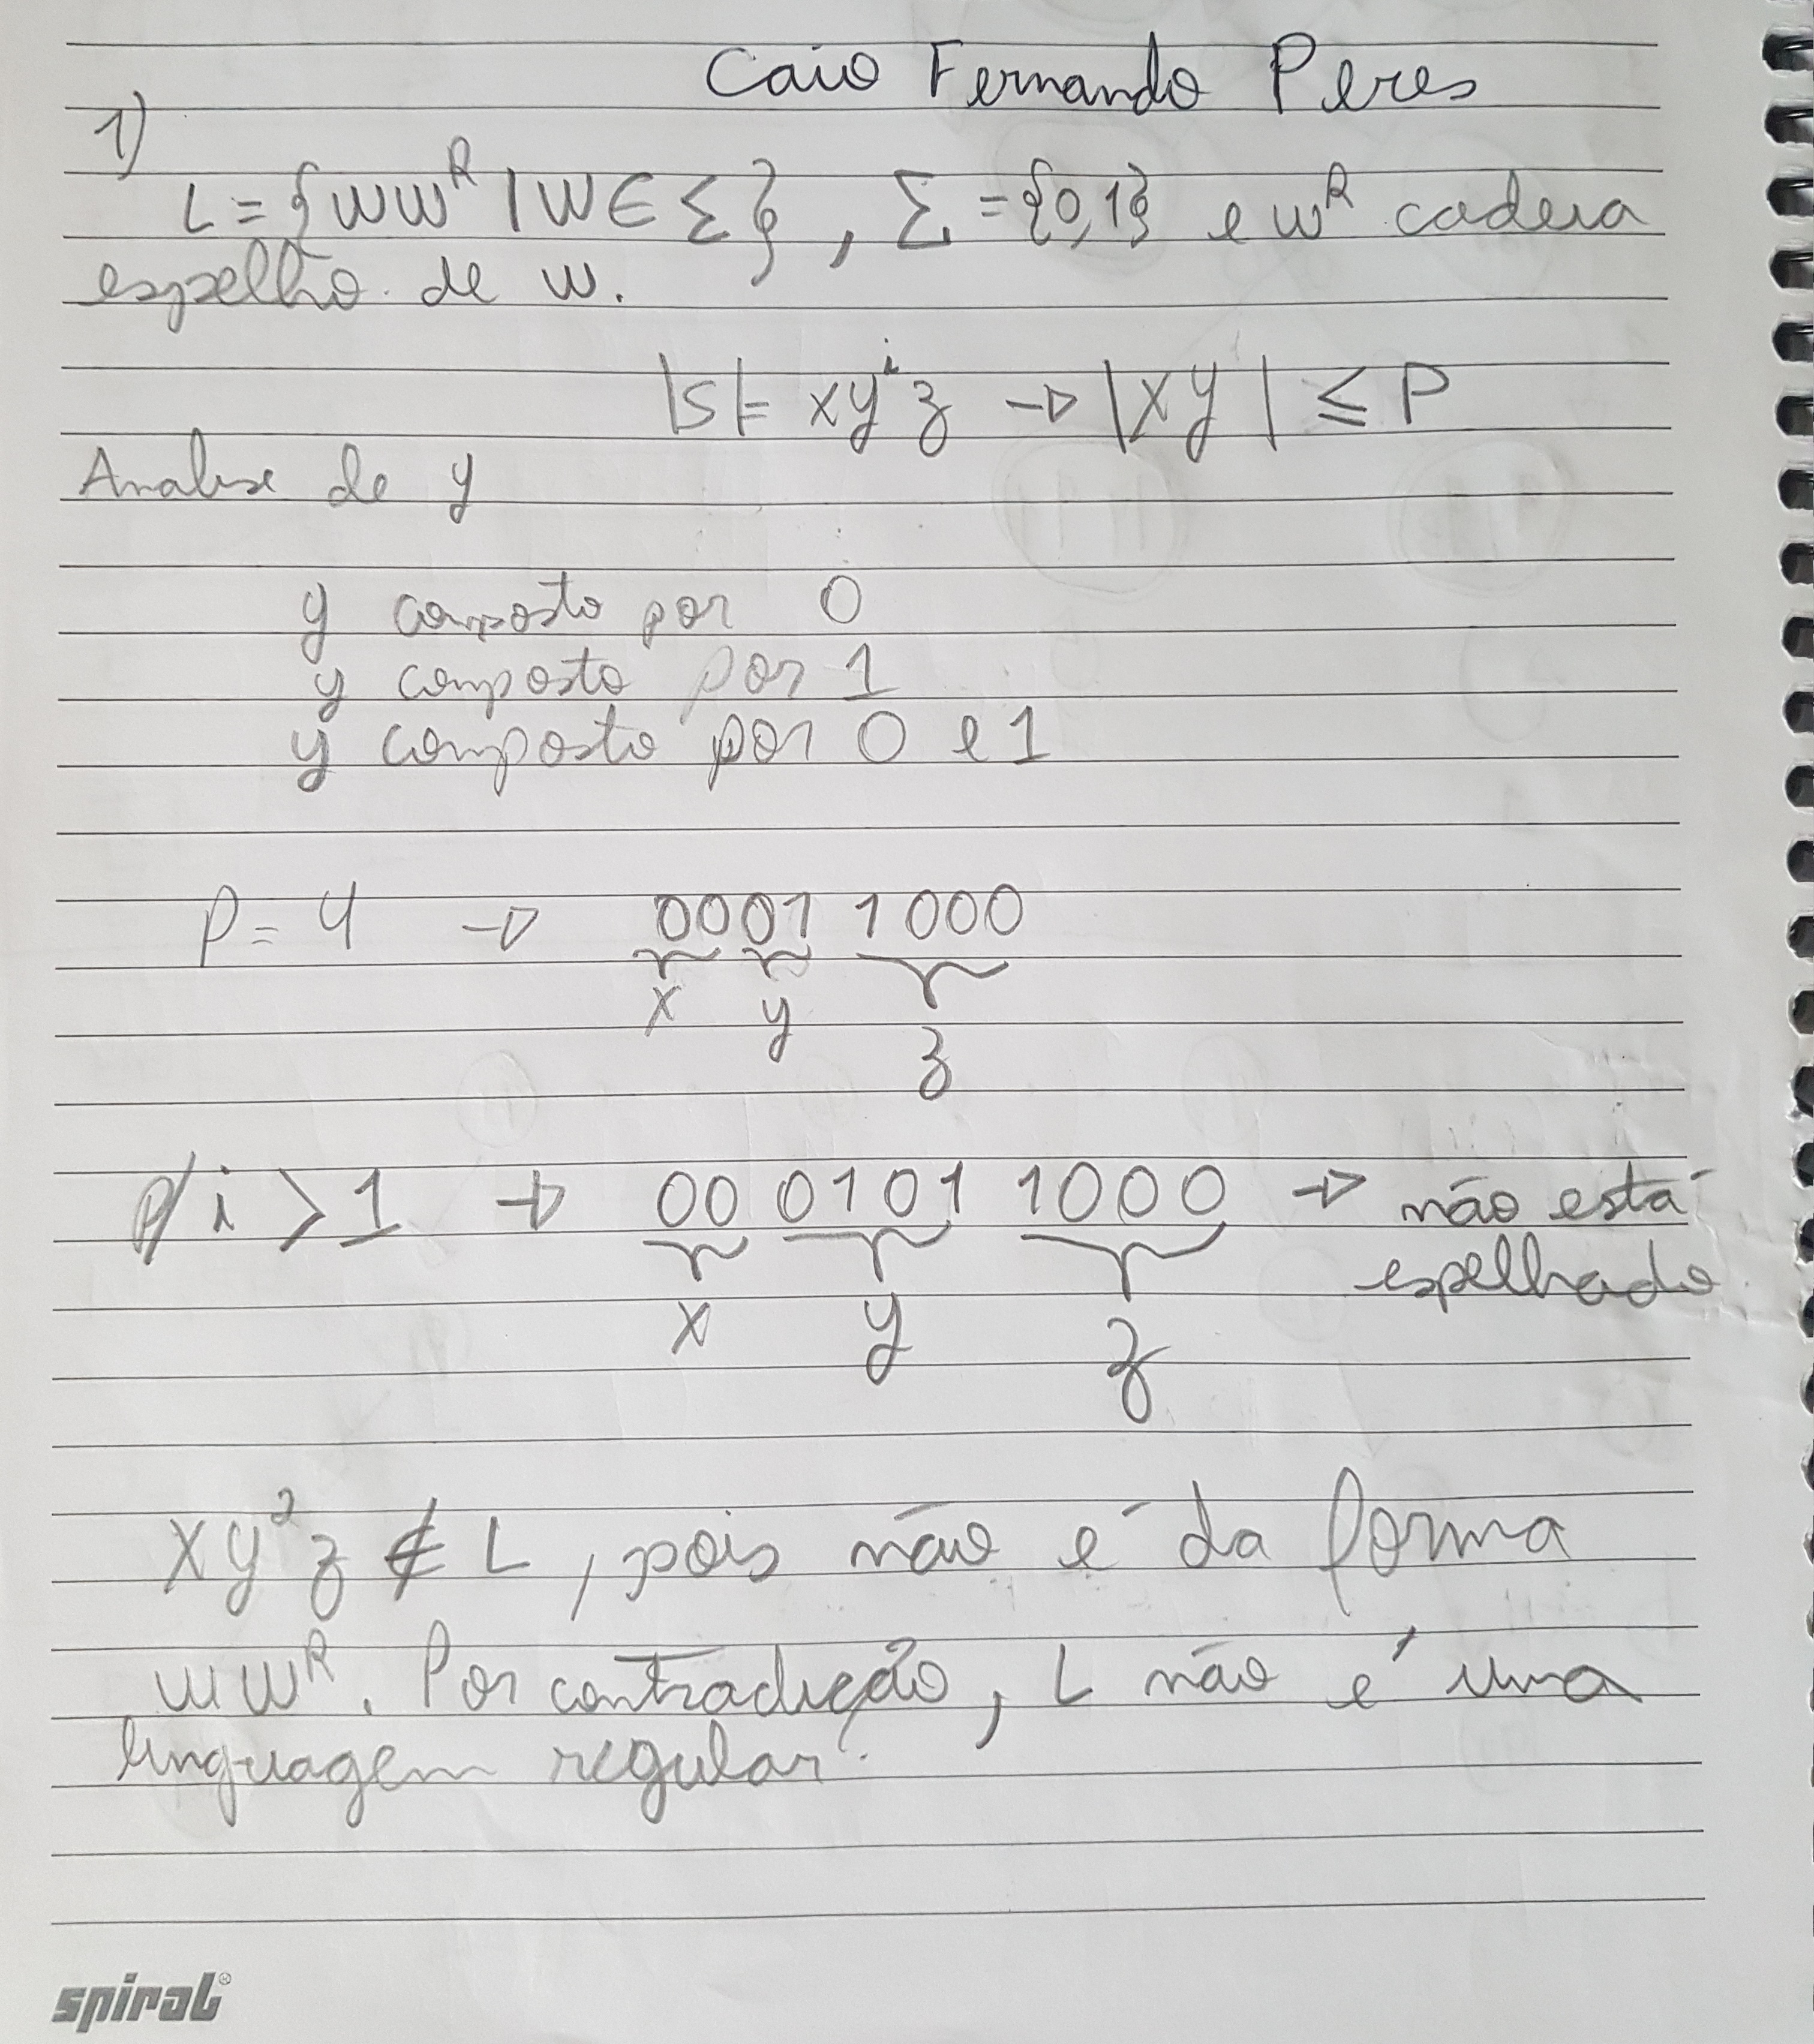 Caio Fernando Peres
1)
L = {ww^R | w ∈ Σ}, Σ = {0,1} e w^R cadeia
espelho de w.
|S| = xy^i z → |xy| ≤ P
Analise de y
y composto por 0
y composto por 1
y composto por 0 e 1
P = 4 → 0001 1000
x y
z
p/ i > 1 → 00 0101 1000 → não está
espelhado
x y z
xy²z ∉ L, pois não é da forma
ww^R. Por contradição, L não é uma
linguagem regular.
spiral®